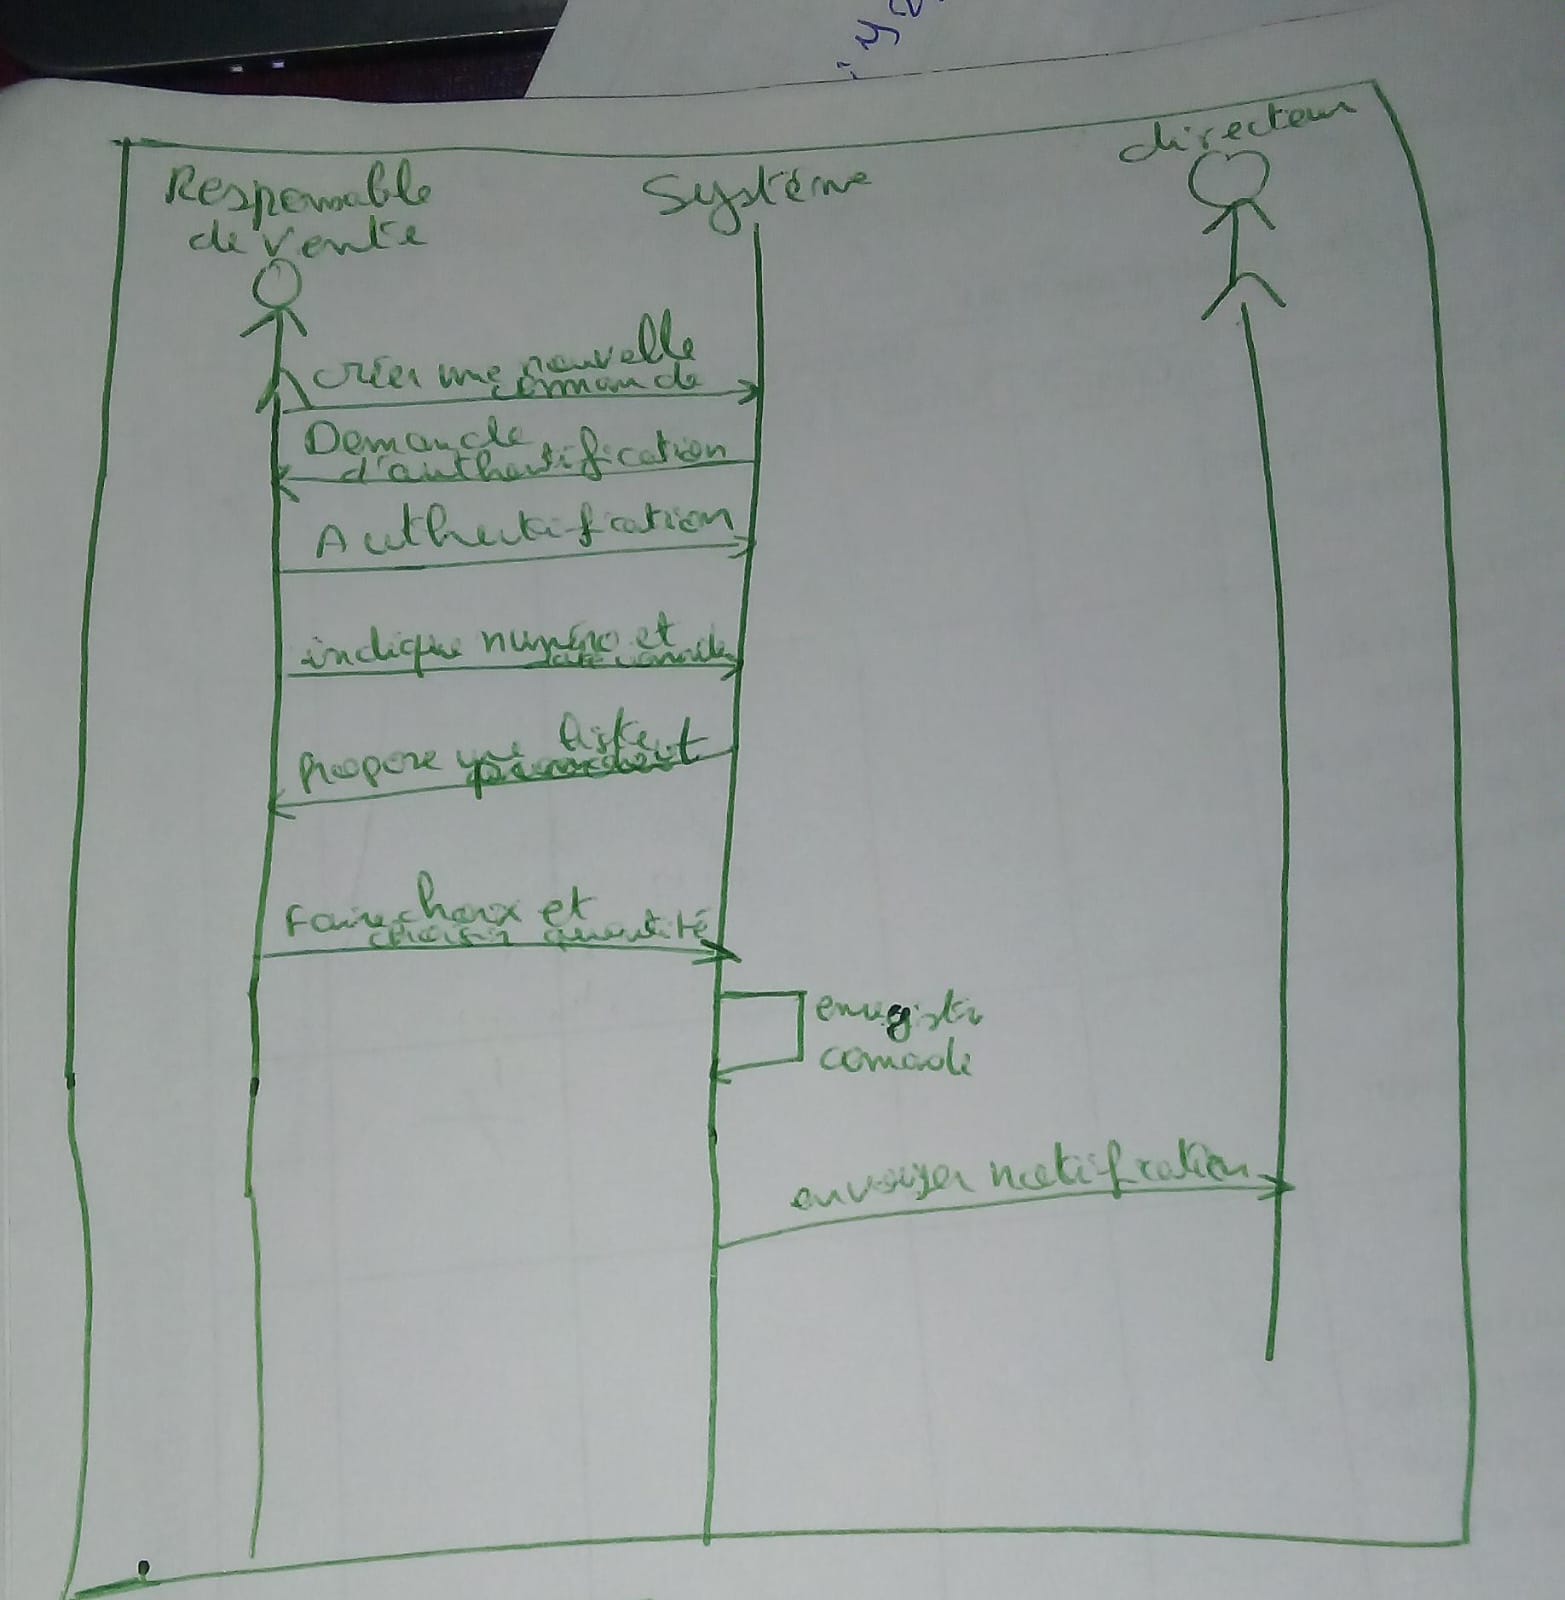 directeur
Responsable
de vente
Système
créer une nouvelle
comande
Demande
d'authentification
Authentification
indique numéro et
date
propose une liste
Faire choix et
choisir quantité
enregistr
comade
envoyer notification